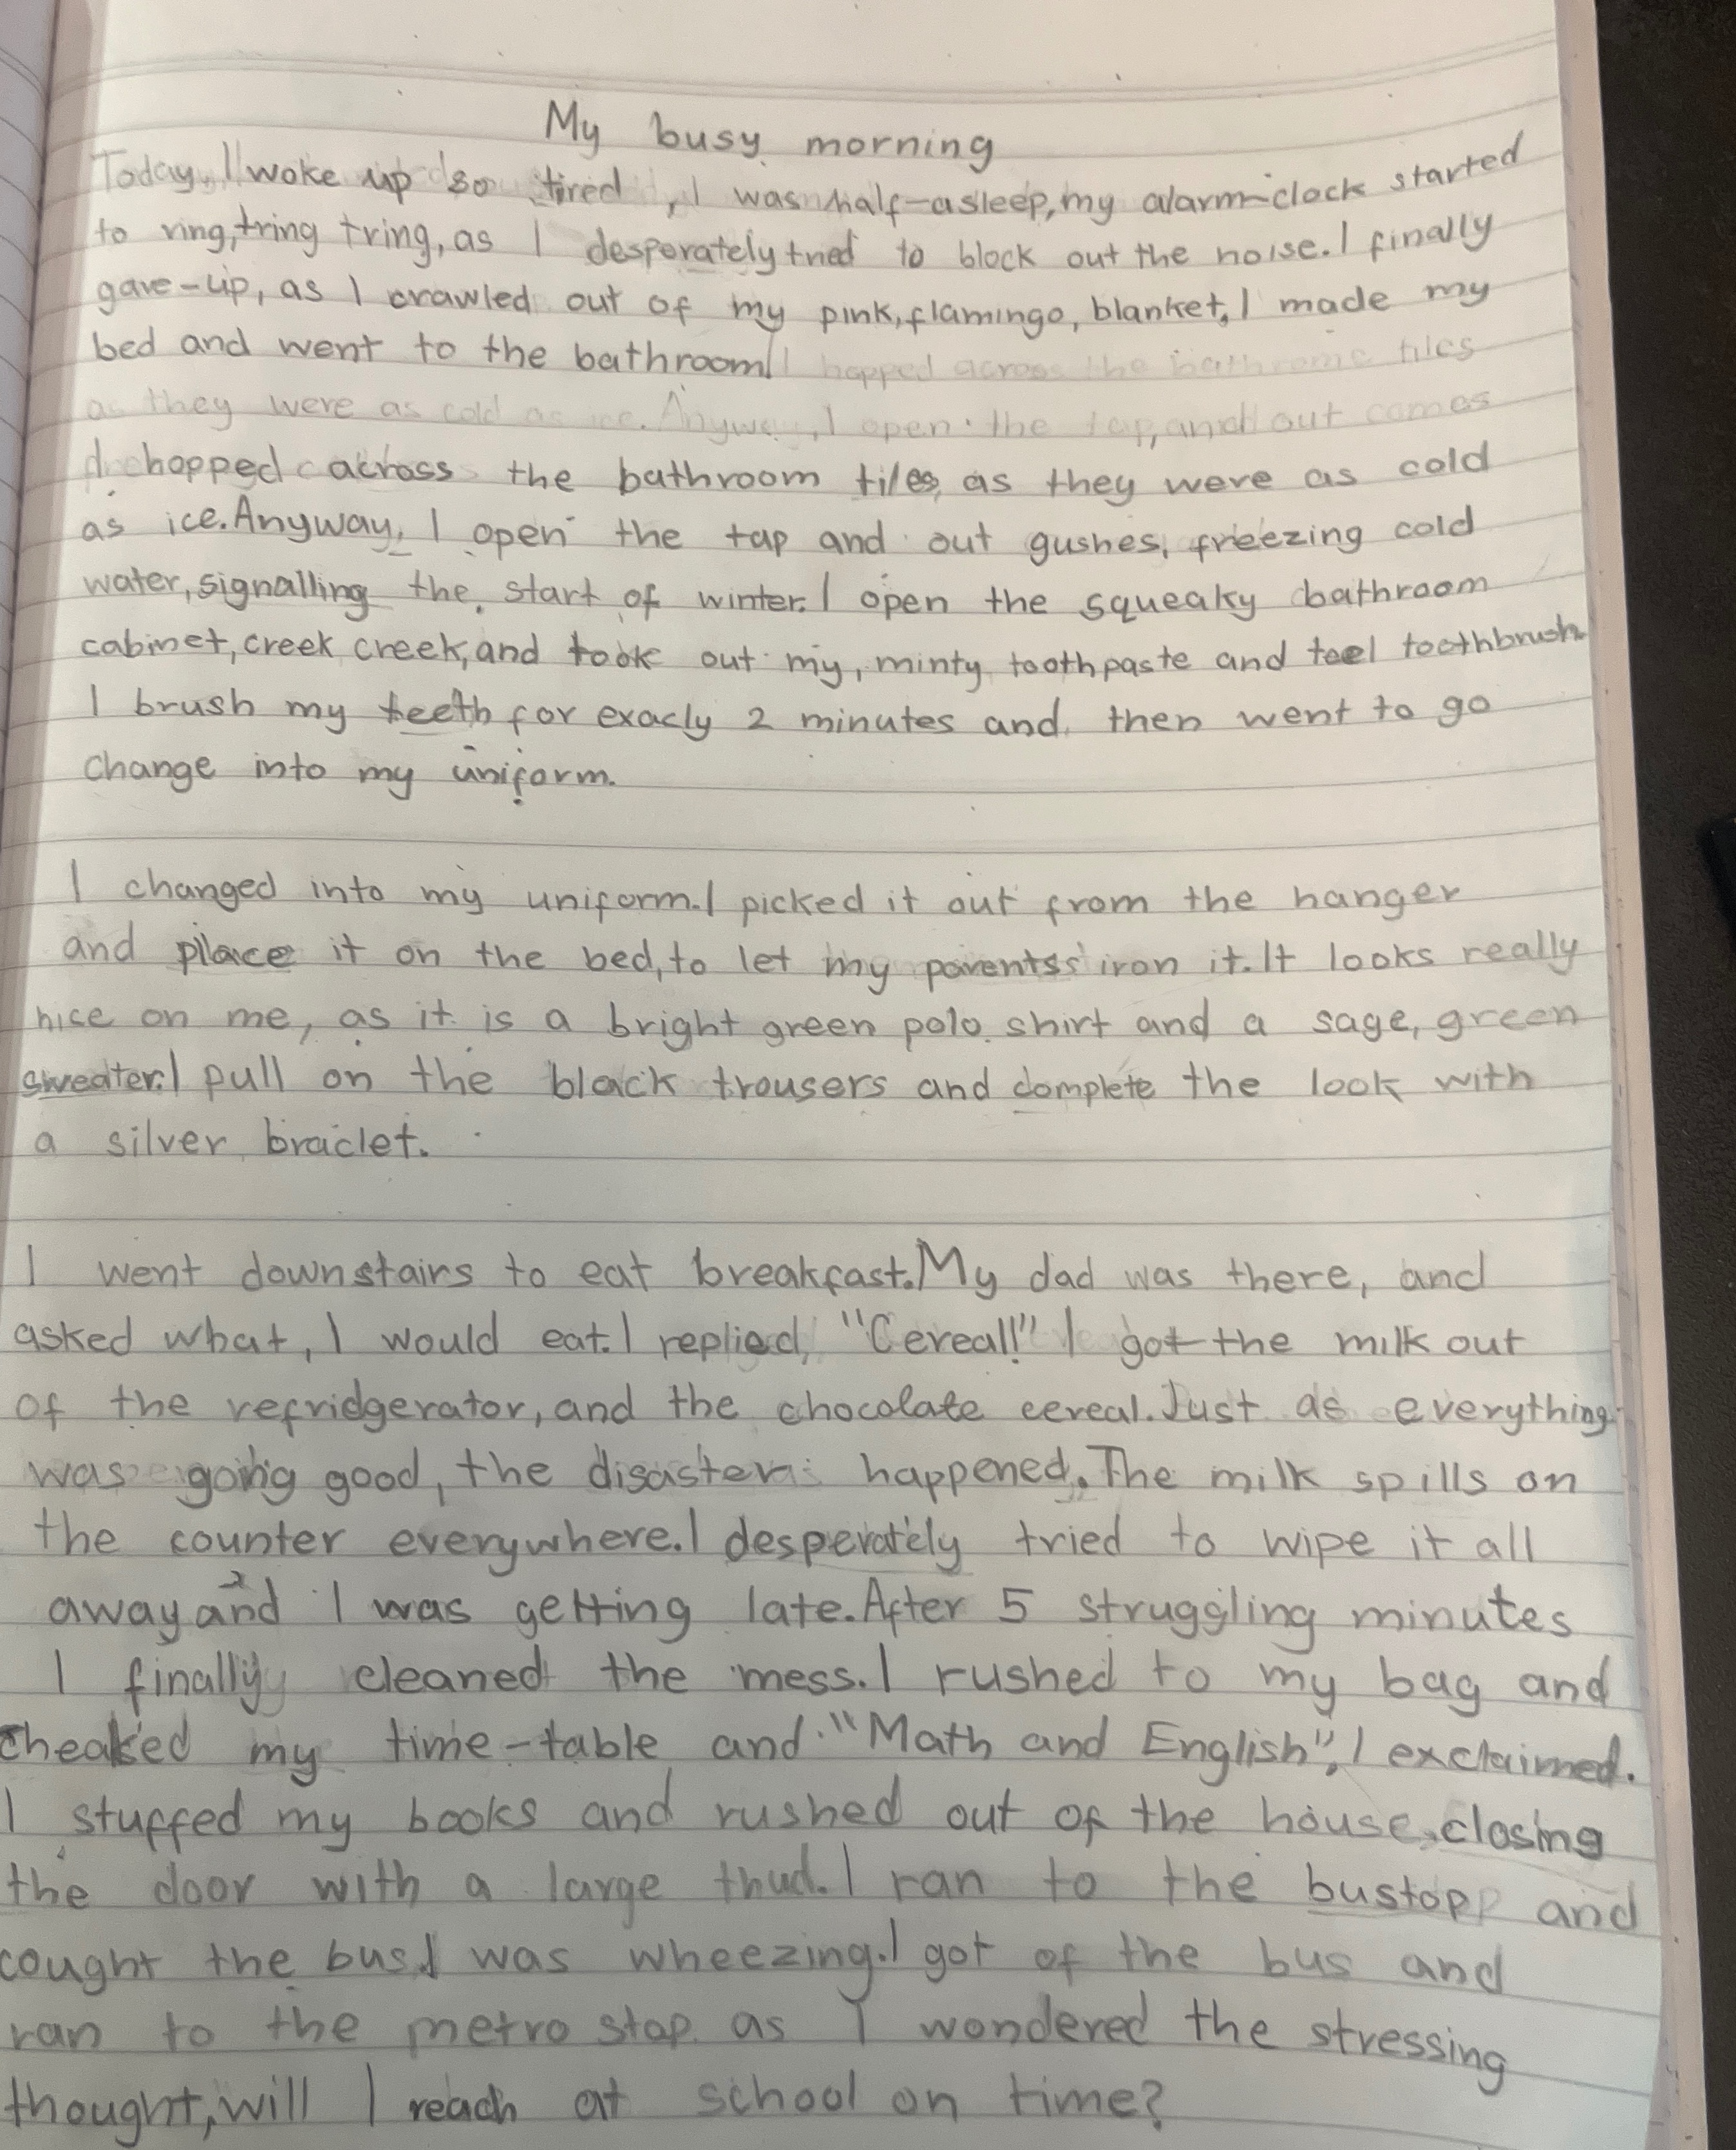 My busy morning
Today, I woke up so tired, I was half-asleep, my alarm-clock started
to ring, tring tring, as I desporately tried to block out the noise. I finally
gave-up, as I crawled out of my pink, flamingo, blanket, I made my
bed and went to the bathroom. I hopped across the bathrome tiles
as they were as cold as ice. Anyway, I open the tap, and out comes
hopped across the bathroom tiles, as they were as cold
as ice. Anyway, I open the tap and out gushes, freezing cold
water, signalling the start of winter. I open the squeaky bathroom
cabinet, creek creek, and took out my, minty toothpaste and teel toothbrush.
I brush my teeth for exacly 2 minutes and then went to go
change into my uniform.
I changed into my uniform. I picked it out from the hanger
and place it on the bed, to let my parents iron it. It looks really
nice on me, as it is a bright green polo shirt and a sage, green
sweater. I pull on the black trousers and complete the look with
a silver braclet.
I went downstairs to eat breakfast. My dad was there, and
asked what, I would eat. I replied, "Cereal!" I got the milk out
of the refridgerator, and the chocolate cereal. Just as everything
was going good, the disaster happened. The milk spills on
the counter everywhere. I desperately tried to wipe it all
away and I was getting late. After 5 struggling minutes
I finally cleaned the mess. I rushed to my bag and
cheaked my time-table and "Math and English", I exclaimed.
I stuffed my books and rushed out of the house, closing
the door with a large thud. I ran to the bustop and
cought the bus. I was wheezing. I got of the bus and
ran to the metro stop as I wondered the stressing
thought, will I reach at school on time?